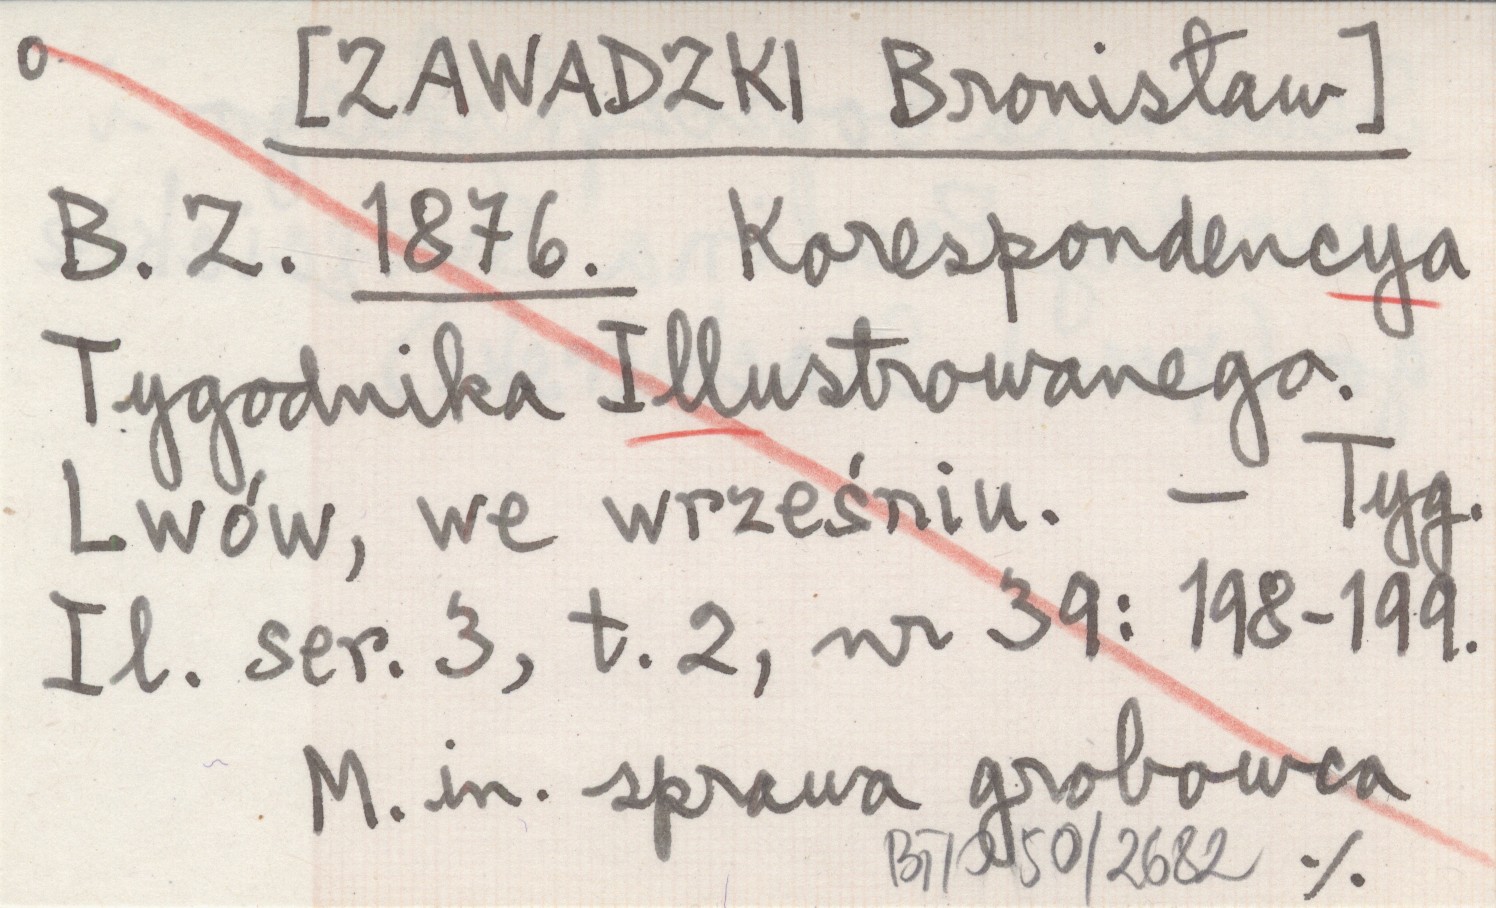 o [ZAWADZKI Bronisław]
B. Z. 1876. Korespondencya
Tygodnika Illustrowanego.
Lwów, we wrześniu. — Tyg.
Il. ser. 3, t. 2, nr 39: 198-199.
M. in. sprawa grobowca
50/2682 ·/.